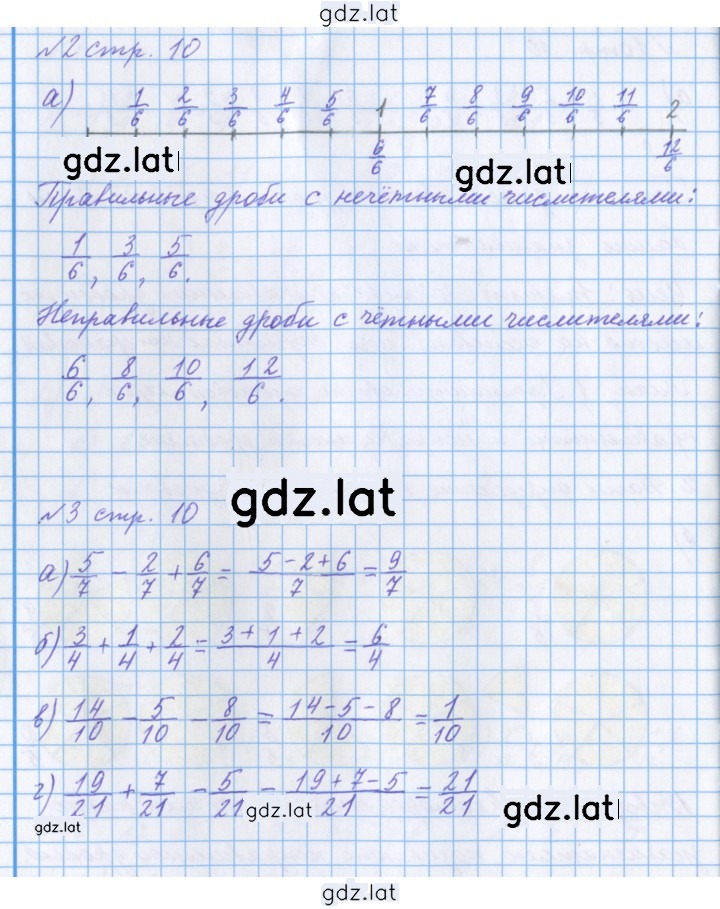 gdz.lat
№2 стр. 10
а) 1/6 2/6 3/6 4/6 5/6 1 7/6 8/6 9/6 10/6 11/6 2
6/6 12/6
gdz.lat gdz.lat
Правильные дроби с нечётными числителями:
1/6, 3/6, 5/6.
Неправильные дроби с чётными числителями:
6/6, 8/6, 10/6, 12/6.
gdz.lat
№3 стр. 10
а) 5/7 - 2/7 + 6/7 = (5-2+6)/7 = 9/7
б) 3/4 + 1/4 + 2/4 = (3+1+2)/4 = 6/4
в) 14/10 - 5/10 - 8/10 = (14-5-8)/10 = 1/10
г) 19/21 + 7/21 - 5/21 - (19+7-5)/21 = 21/21
gdz.lat gdz.lat gdz.lat
gdz.lat